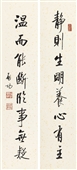 静則生明養心有主
温而能斷臨事無疑
启功